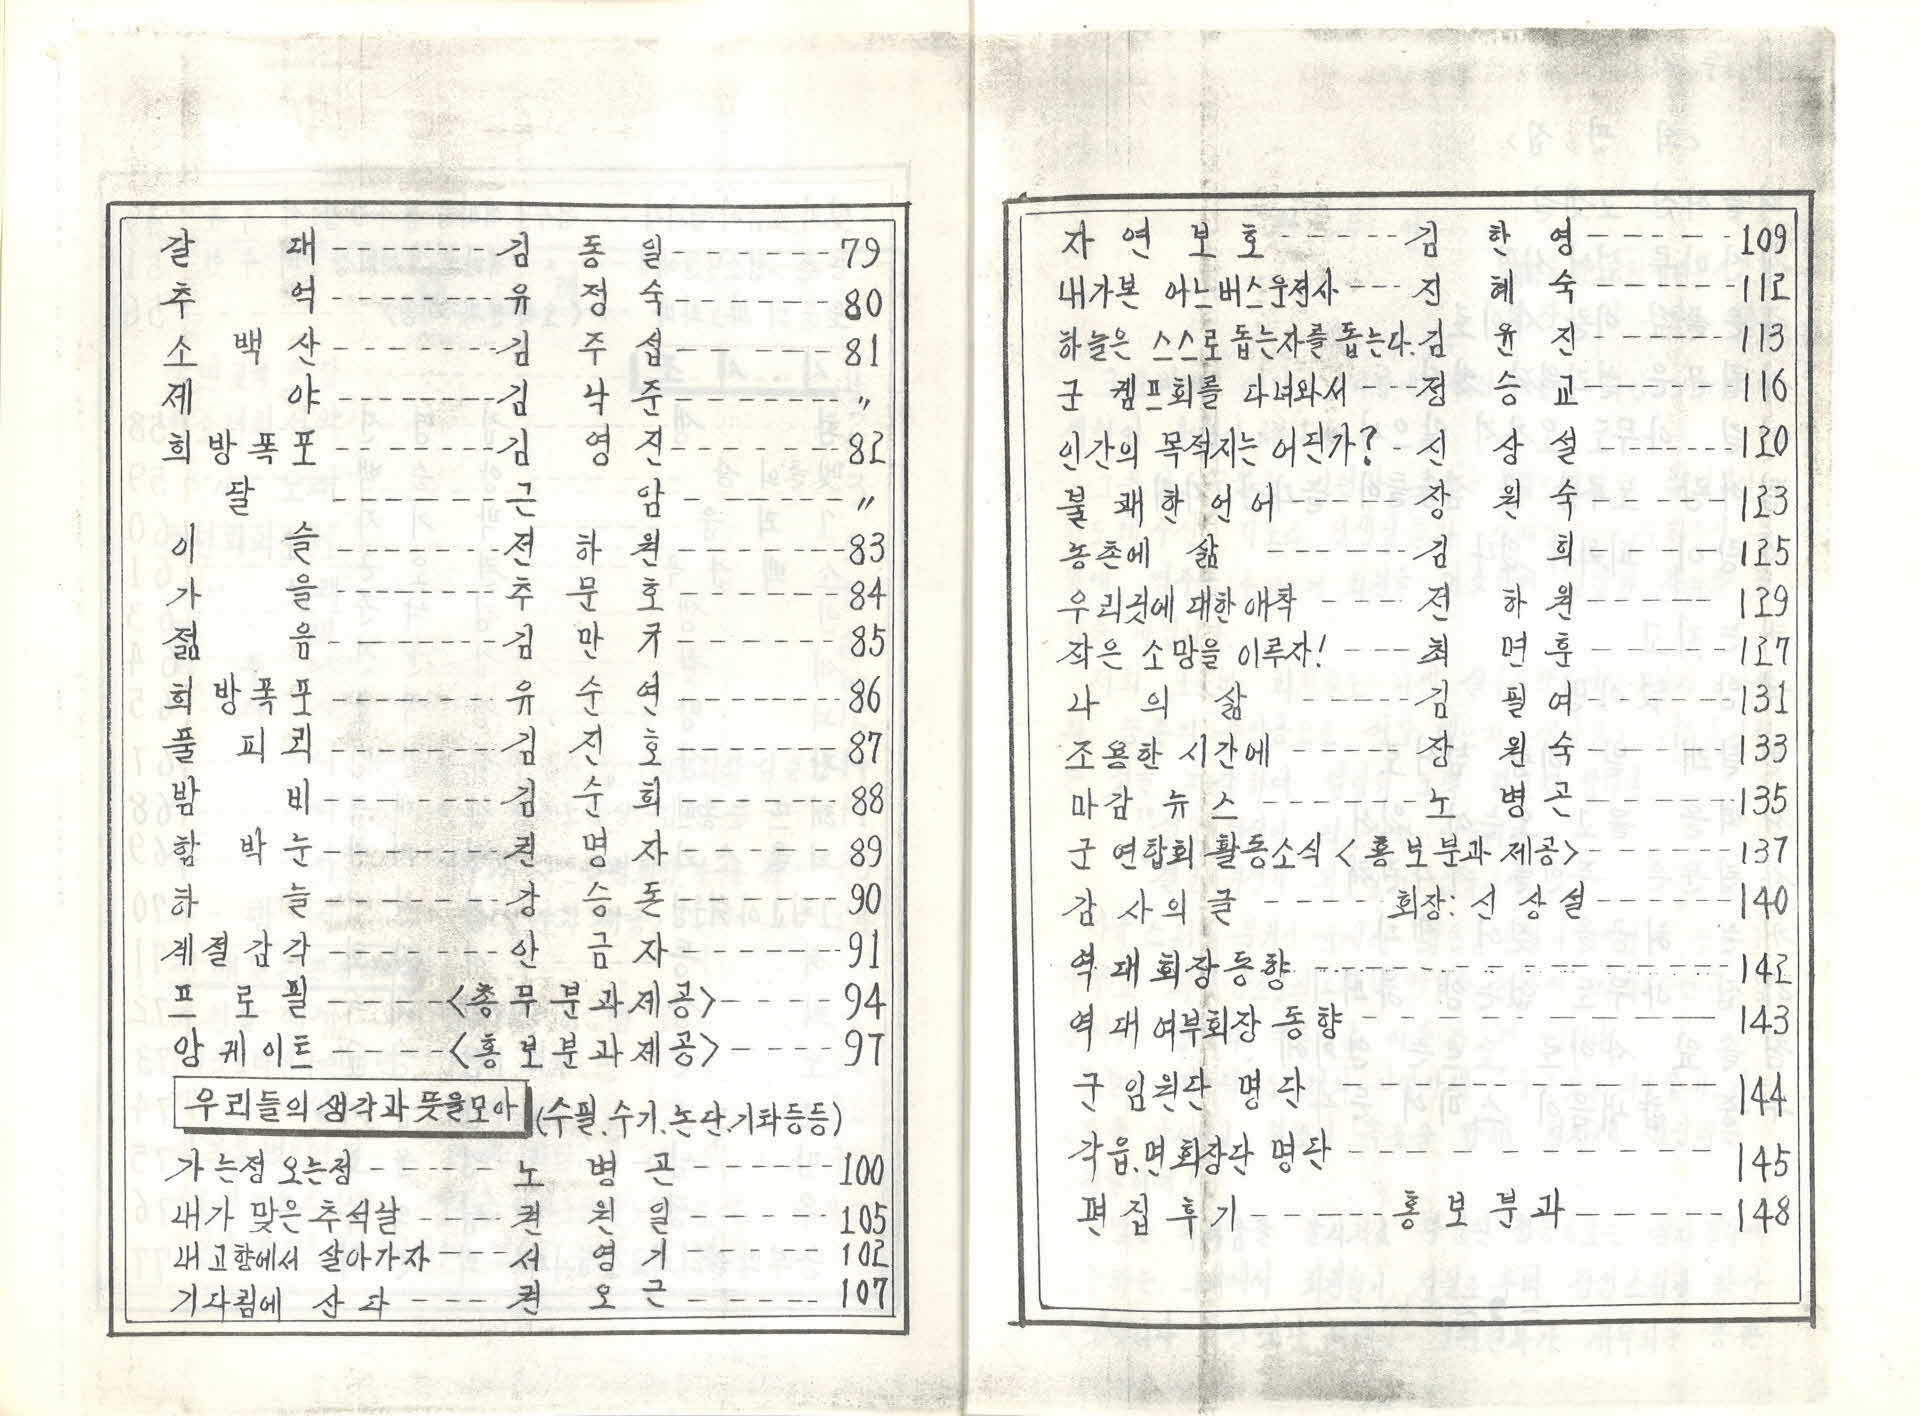 갈 대 ------- 김 동 일 ------- 79
추 억 ------- 유 정 숙 ------- 80
소 백 산 ------- 김 주 섭 ------- 81
제 야 ------- 김 낙 준 ------- 〃
희방폭포 ------- 김 영 진 ------- 82
달 ------- 근 암 ------- 〃
이 슬 ------- 전 하 원 ------- 83
가 을 ------- 추 문 호 ------- 84
젊 음 ------- 김 만 ------- 85
희방폭포 ------- 유 순 연 ------- 86
풀 피 리 ------- 김 진 호 ------- 87
밤 비 ------- 김 순 희 ------- 88
함 박 눈 ------- 권 명 자 ------- 89
하 늘 ------- 강 승 돈 ------- 90
계절감각 ------- 안 금 자 ------- 91
프 로 필 ---- <총무분과제공> ---- 94
앙케이트 ---- <홍보분과제공> ---- 97
우리들의 생각과 뜻을모아 (수필.수기.논단.기타등등)
가는정 오는정 ----- 노 병 곤 ------ 100
내가 맞은 추석날 ---- 권 원 일 ------ 105
내고향에서 살아가자 --- 서 영 기 ------ 102
기다림에 산다 --- 권 오 근 ------ 107
자 연 보 호 ----- 김 한 영 ----- 109
내가본 어느버스운전사 --- 진 혜 숙 ------ 112
하늘은 스스로 돕는자를 돕는다. 김 윤 진 ----- 113
군 켐프회를 다녀와서 --- 정 승 교 ------ 116
인간의 목적지는 어딘가? - 신 상 설 ------ 120
불쾌한 언어 ------ 장 원 숙 ------ 123
농촌에 삶 ------ 김 희 ------ 125
우리것에 대한 애착 ---- 전 하 원 ------ 129
작은 소망을 이루자! ---- 최 면 훈 ------ 127
나 의 삶 ------ 김 필 여 ------ 131
조용한 시간에 ----- 장 원 숙 ------ 133
마감 뉴스 ------- 노 병 곤 ------ 135
군 연합회 활동소식 <홍보분과 제공> ------ 137
감사의 글 ----- 회장: 신 상 설 ------ 140
역대회장동향 --------------- 142
역대여부회장 동향 -------------- 143
군 임원단 명단 -------------- 144
각읍.면회장단 명단 -------------- 145
편집후기 ------ 홍보분과 ------ 148